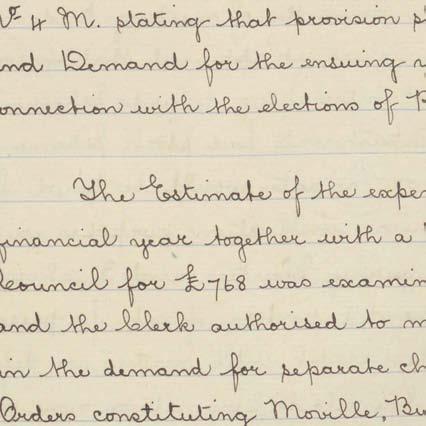 No 4 M. stating that provision
and Demand for the ensuing
connection with the elections of
The Estimate of the expe
financial year together with a
Council for £768 was examin
and the Clerk authorised to m
in the demand for separate ch
Orders constituting Moville, Bu